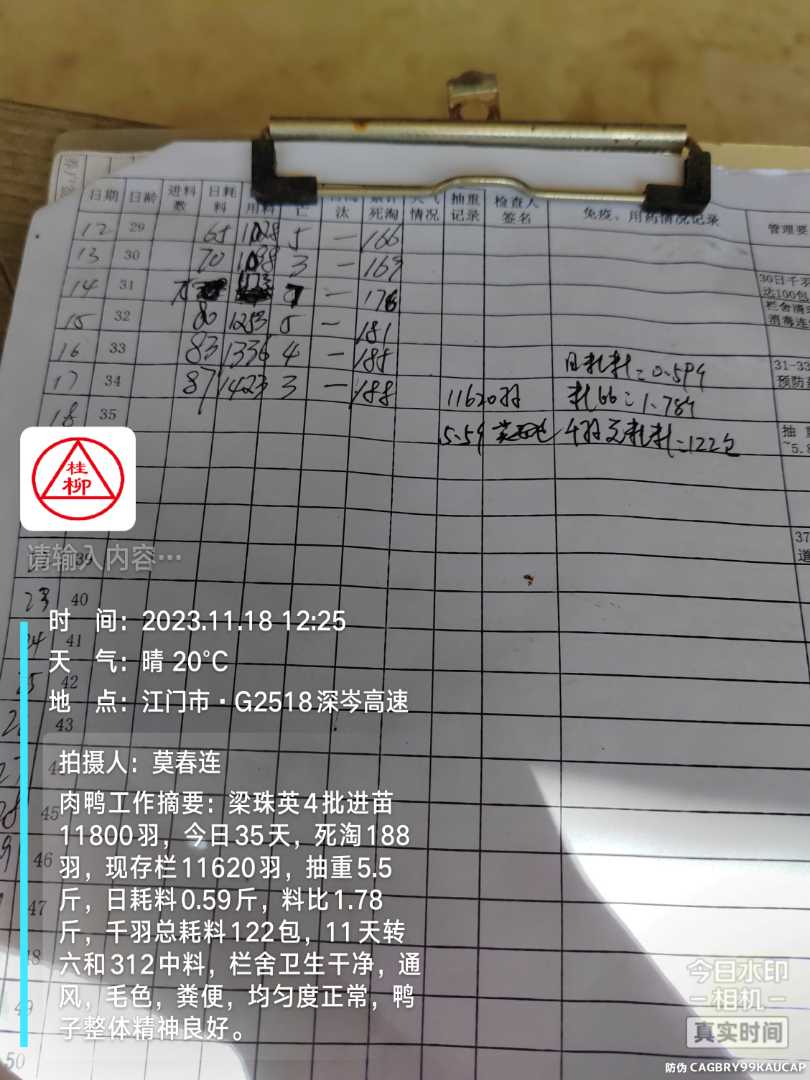 日期 日龄 进料数 日耗料 用料 亡 汰 死淘 情况 抽重记录 检查人签名 免疫、用药情况记录 管理要
12 29 65 1028 5 — 166
13 30 70 1098 3 — 169
14 31 — 176
30日千羽
达100包
栏舍清
消毒连
15 32 80 1253 5 — 181
16 33 83 1336 4 — 188 日耗料=0.59斤
31-33
预防
17 34 87 1423 3 — 188 11620羽 料比=1.78斤
18 35 5.5斤 千羽总耗料=122包
抽重
~5.8
桂柳
请输入内容…
37
道
39
23 40
时 间：2023.11.18 12:25
24 41
天 气：晴 20°C
25 42
地 点：江门市·G2518深岑高速
43
拍摄人：莫春连
肉鸭工作摘要：梁珠英4批进苗
45
11800羽，今日35天，死淘188
羽，现存栏11620羽，抽重5.5
46
斤，日耗料0.59斤，料比1.78
47
斤，千羽总耗料122包，11天转
六和312中料，栏舍卫生干净，通
48
风，毛色，粪便，均匀度正常，鸭
49
子整体精神良好。
50
今日水印
相机
真实时间
防伪 CAGBRY99KAUCAP